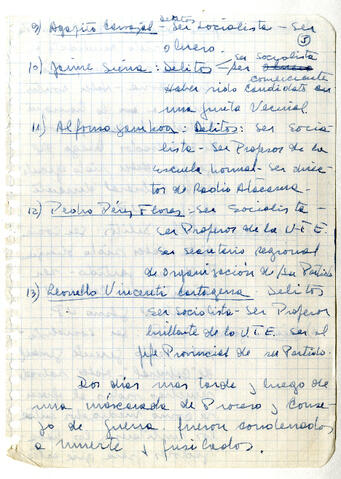 5
delitos
9) Agapito Carvajal - Ser Socialista - Ser
Obrero.
10) Jaime Sierra: Delitos - Ser Socialista
comerciante
Haber sido Candidato en
una Junta Vecinal.
11) Alfonso Gamboa: Delitos: Ser Socia-
lista - Ser Profesor de la
Escuela Normal - Ser direc-
tor de Radio Atacama.
12) Pedro Pérez Flores - Ser Socialista -
ser Profesor de la U.T.E.
Ser Secretario regional
de Organización de su Partido
13) Leonello Vincenti Cartagena Delitos
Ser Socialista - Ser Profesor
brillante de la U.T.E. Ser el
jefe Provincial de su Partido.
Dos días mas tarde y luego de
una máscarada de Proceso y Conse-
jo de Guerra fueron condenados
a muerte y fusilados.